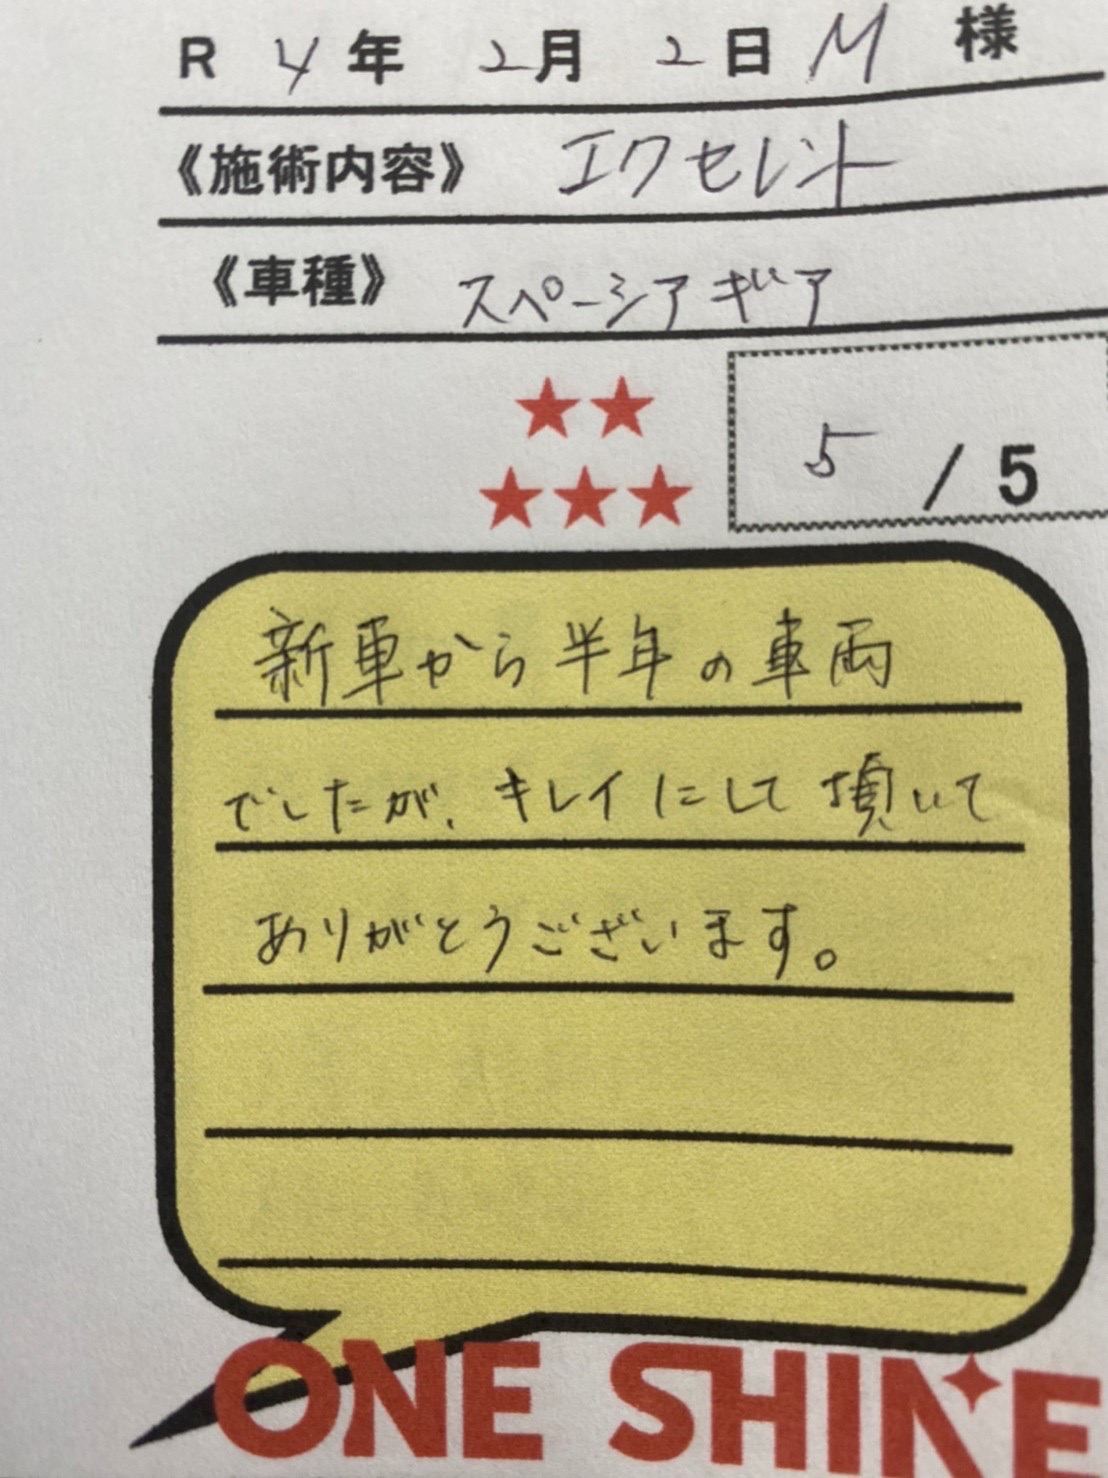 R 4年 2月 2日 M 様
《施術内容》 エクセレント
《車種》 スペーシアギア
★★
★★★
5 / 5
新車から半年の車両
でしたが、キレイにして頂いて
ありがとうございます。
ONE SHINE